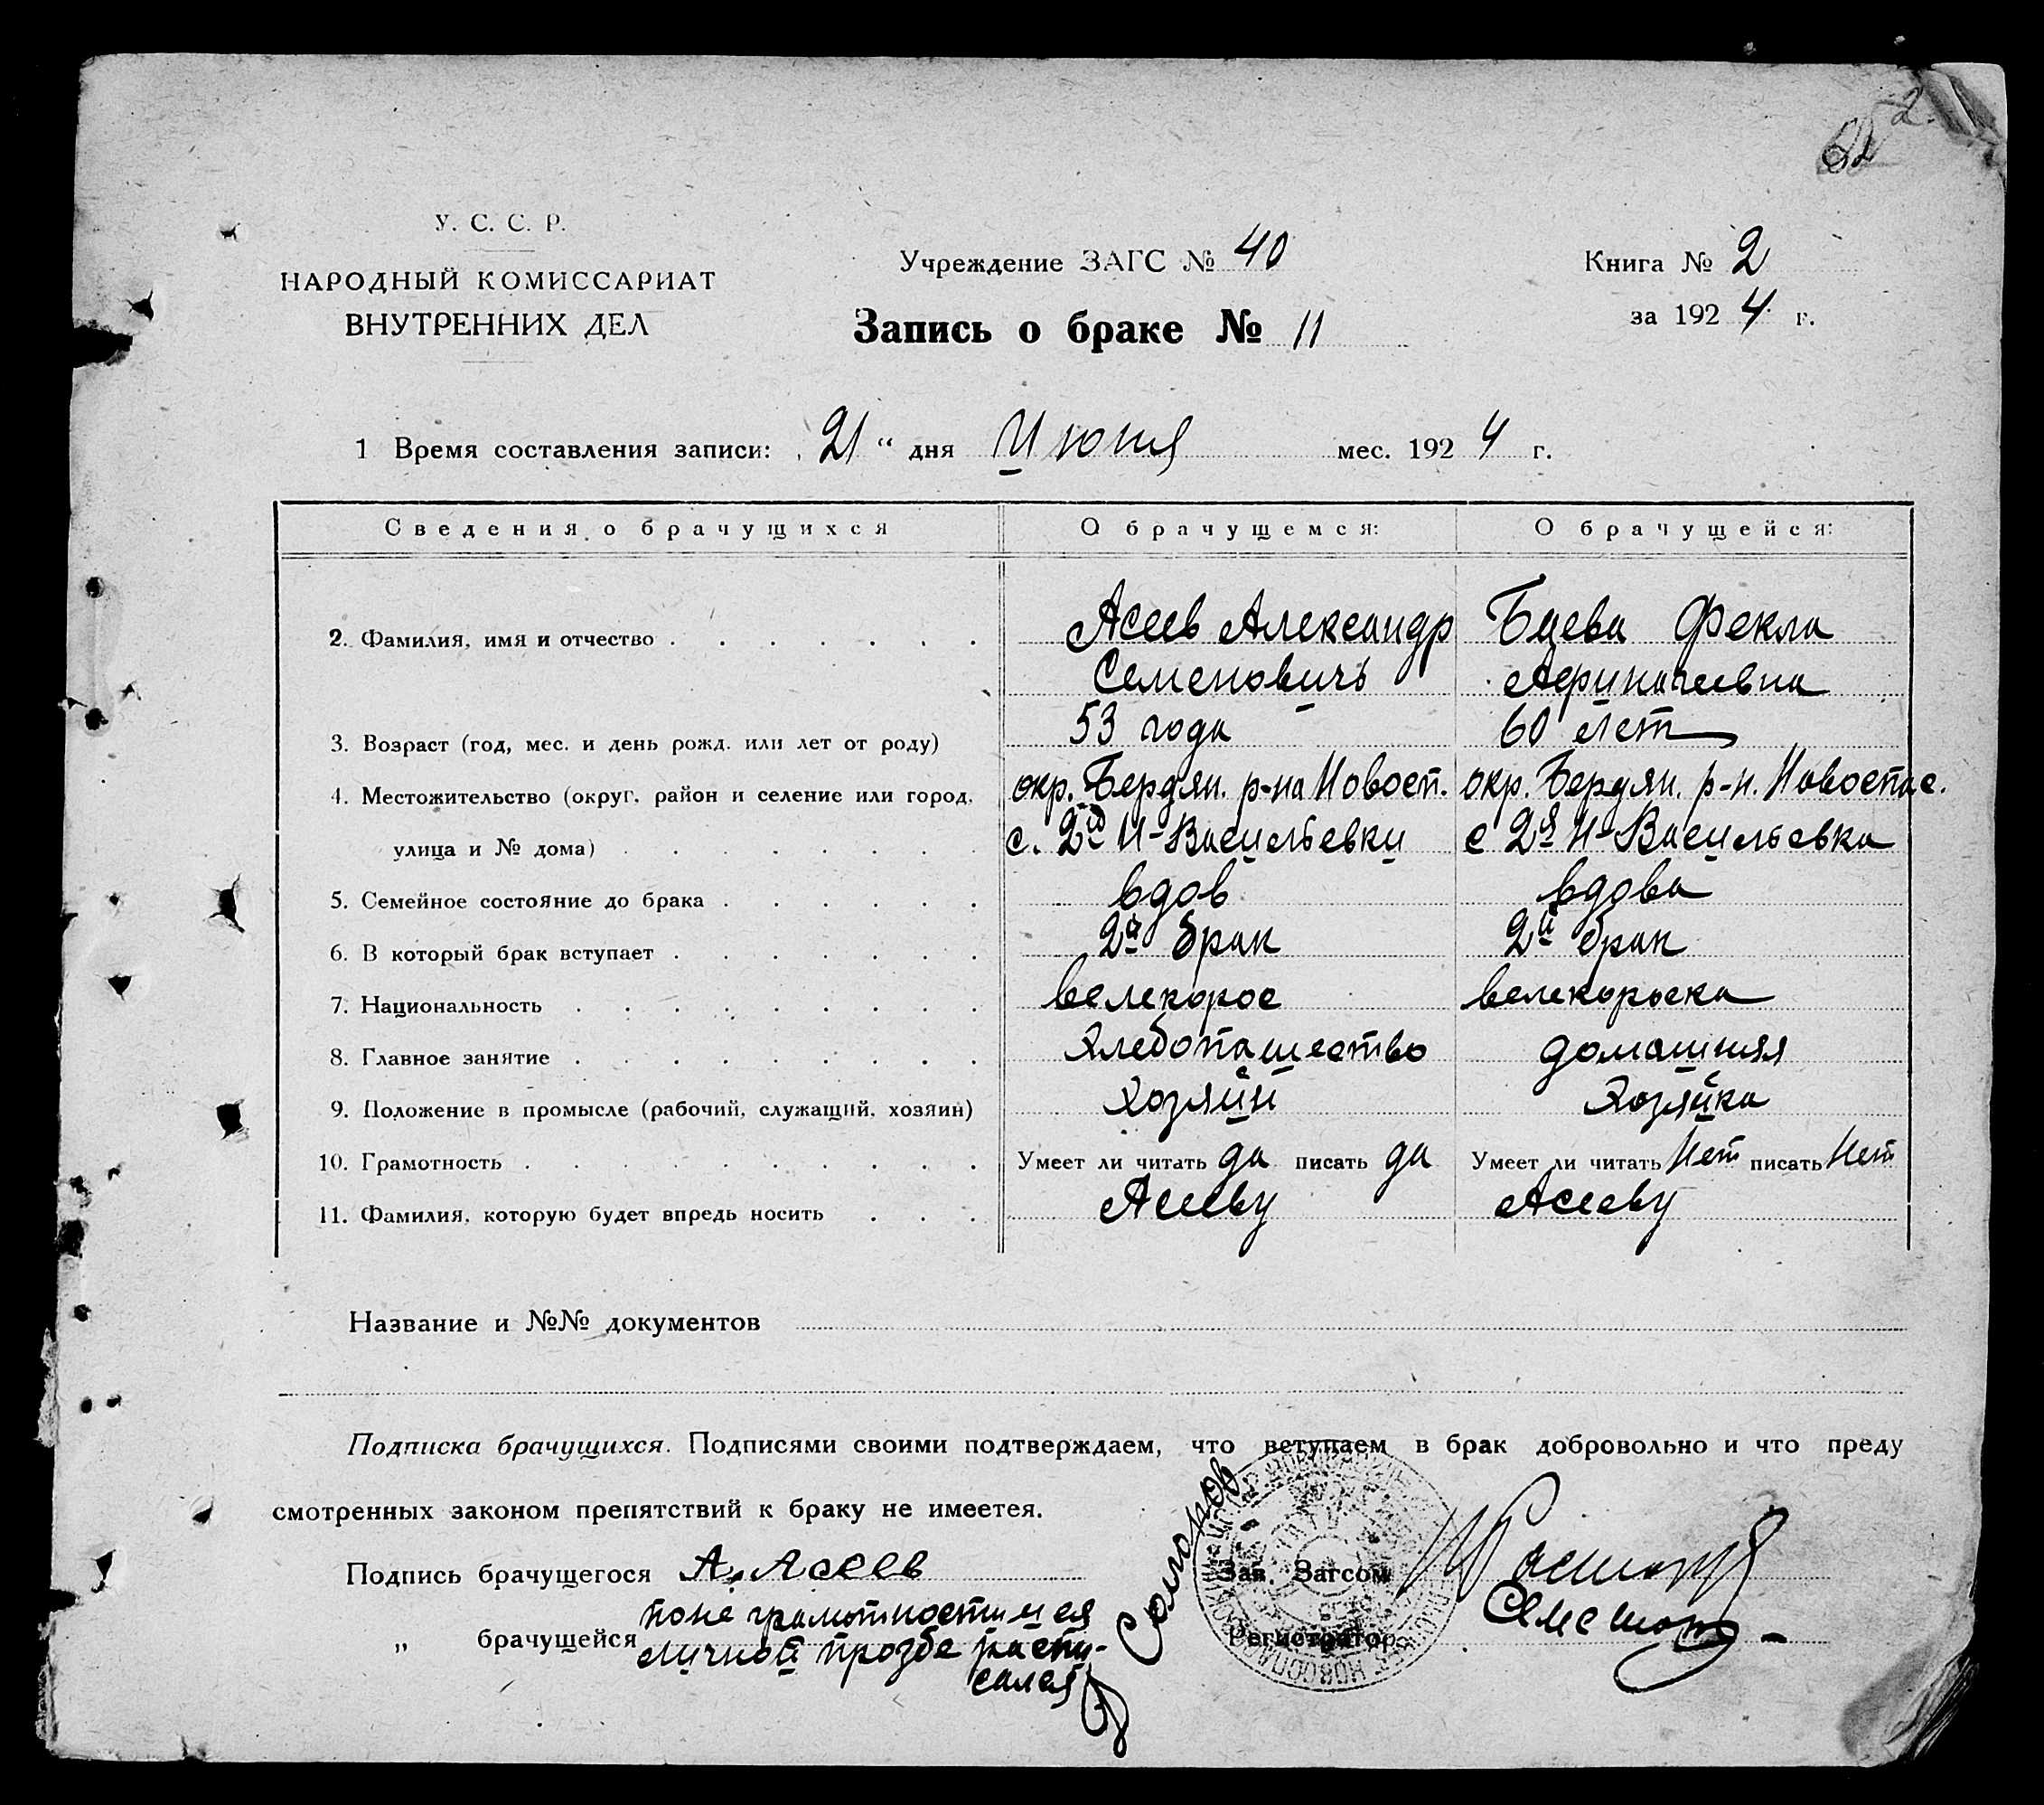 2.
62
У. С. С. Р.
НАРОДНЫЙ КОМИССАРИАТ
ВНУТРЕННИХ ДЕЛ
Учреждение ЗАГС № 40
Запись о браке № 11
Книга № 2
за 1924 г.
1 Время составления записи: „21“ дня Июня мес. 1924 г.
Сведения о брачущихся О брачущемся: О брачущейся:
2. Фамилия, имя и отчество Асеев Александр Баева Фекла
Семеновичь
3. Возраст (год, мес. и день рожд. или лет от роду) 53 года 60 лет
4. Местожительство (округ. район и селение или город. окр. Бердян. р-на Новосп. окр. Бердян. р-н. Новоспас.
улица и № дома) с. 2й Н-Васильевки с 2я Н-Васильевка
5. Семейное состояние до брака вдов вдова
6. В который брак вступает 2й брак 2й брак
7. Национальность велекорос велекороска
8. Главное занятие хлебопашество домашняя
9. Положение в промысле (рабочий, служащий, хозяин) хозяйн хозяйка
10. Грамотность Умеет ли читать да писать да Умеет ли читать Нет писать Нет
11. Фамилия, которую будет впредь носить Асееву Асееву
Название и №№ документов
Подписка брачущихся. Подписями своими подтверждаем, что вступаем в брак добровольно и что преду
смотренных законом препятствий к браку не имеется.
Подпись брачущегося А. Асеев Зав. Загсом
по не грамотности и ея
„ брачущейся личной прозбе распи- Регистратор
сался